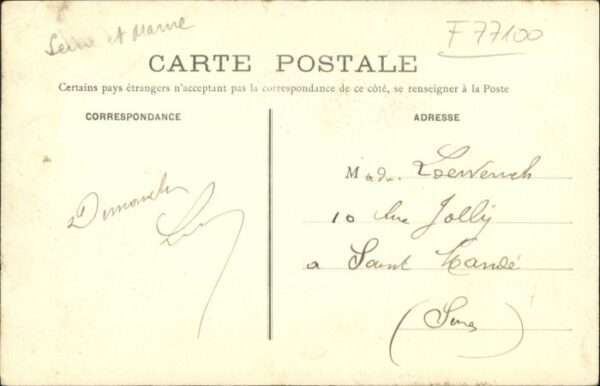 Seine et Marne
F77100
CARTE POSTALE
Certains pays étrangers n'acceptant pas la correspondance de ce côté, se renseigner à la Poste
CORRESPONDANCE
ADRESSE
Dimanche
Mada.
10 Rue Jolly
a Saint Mandé
(Seine)